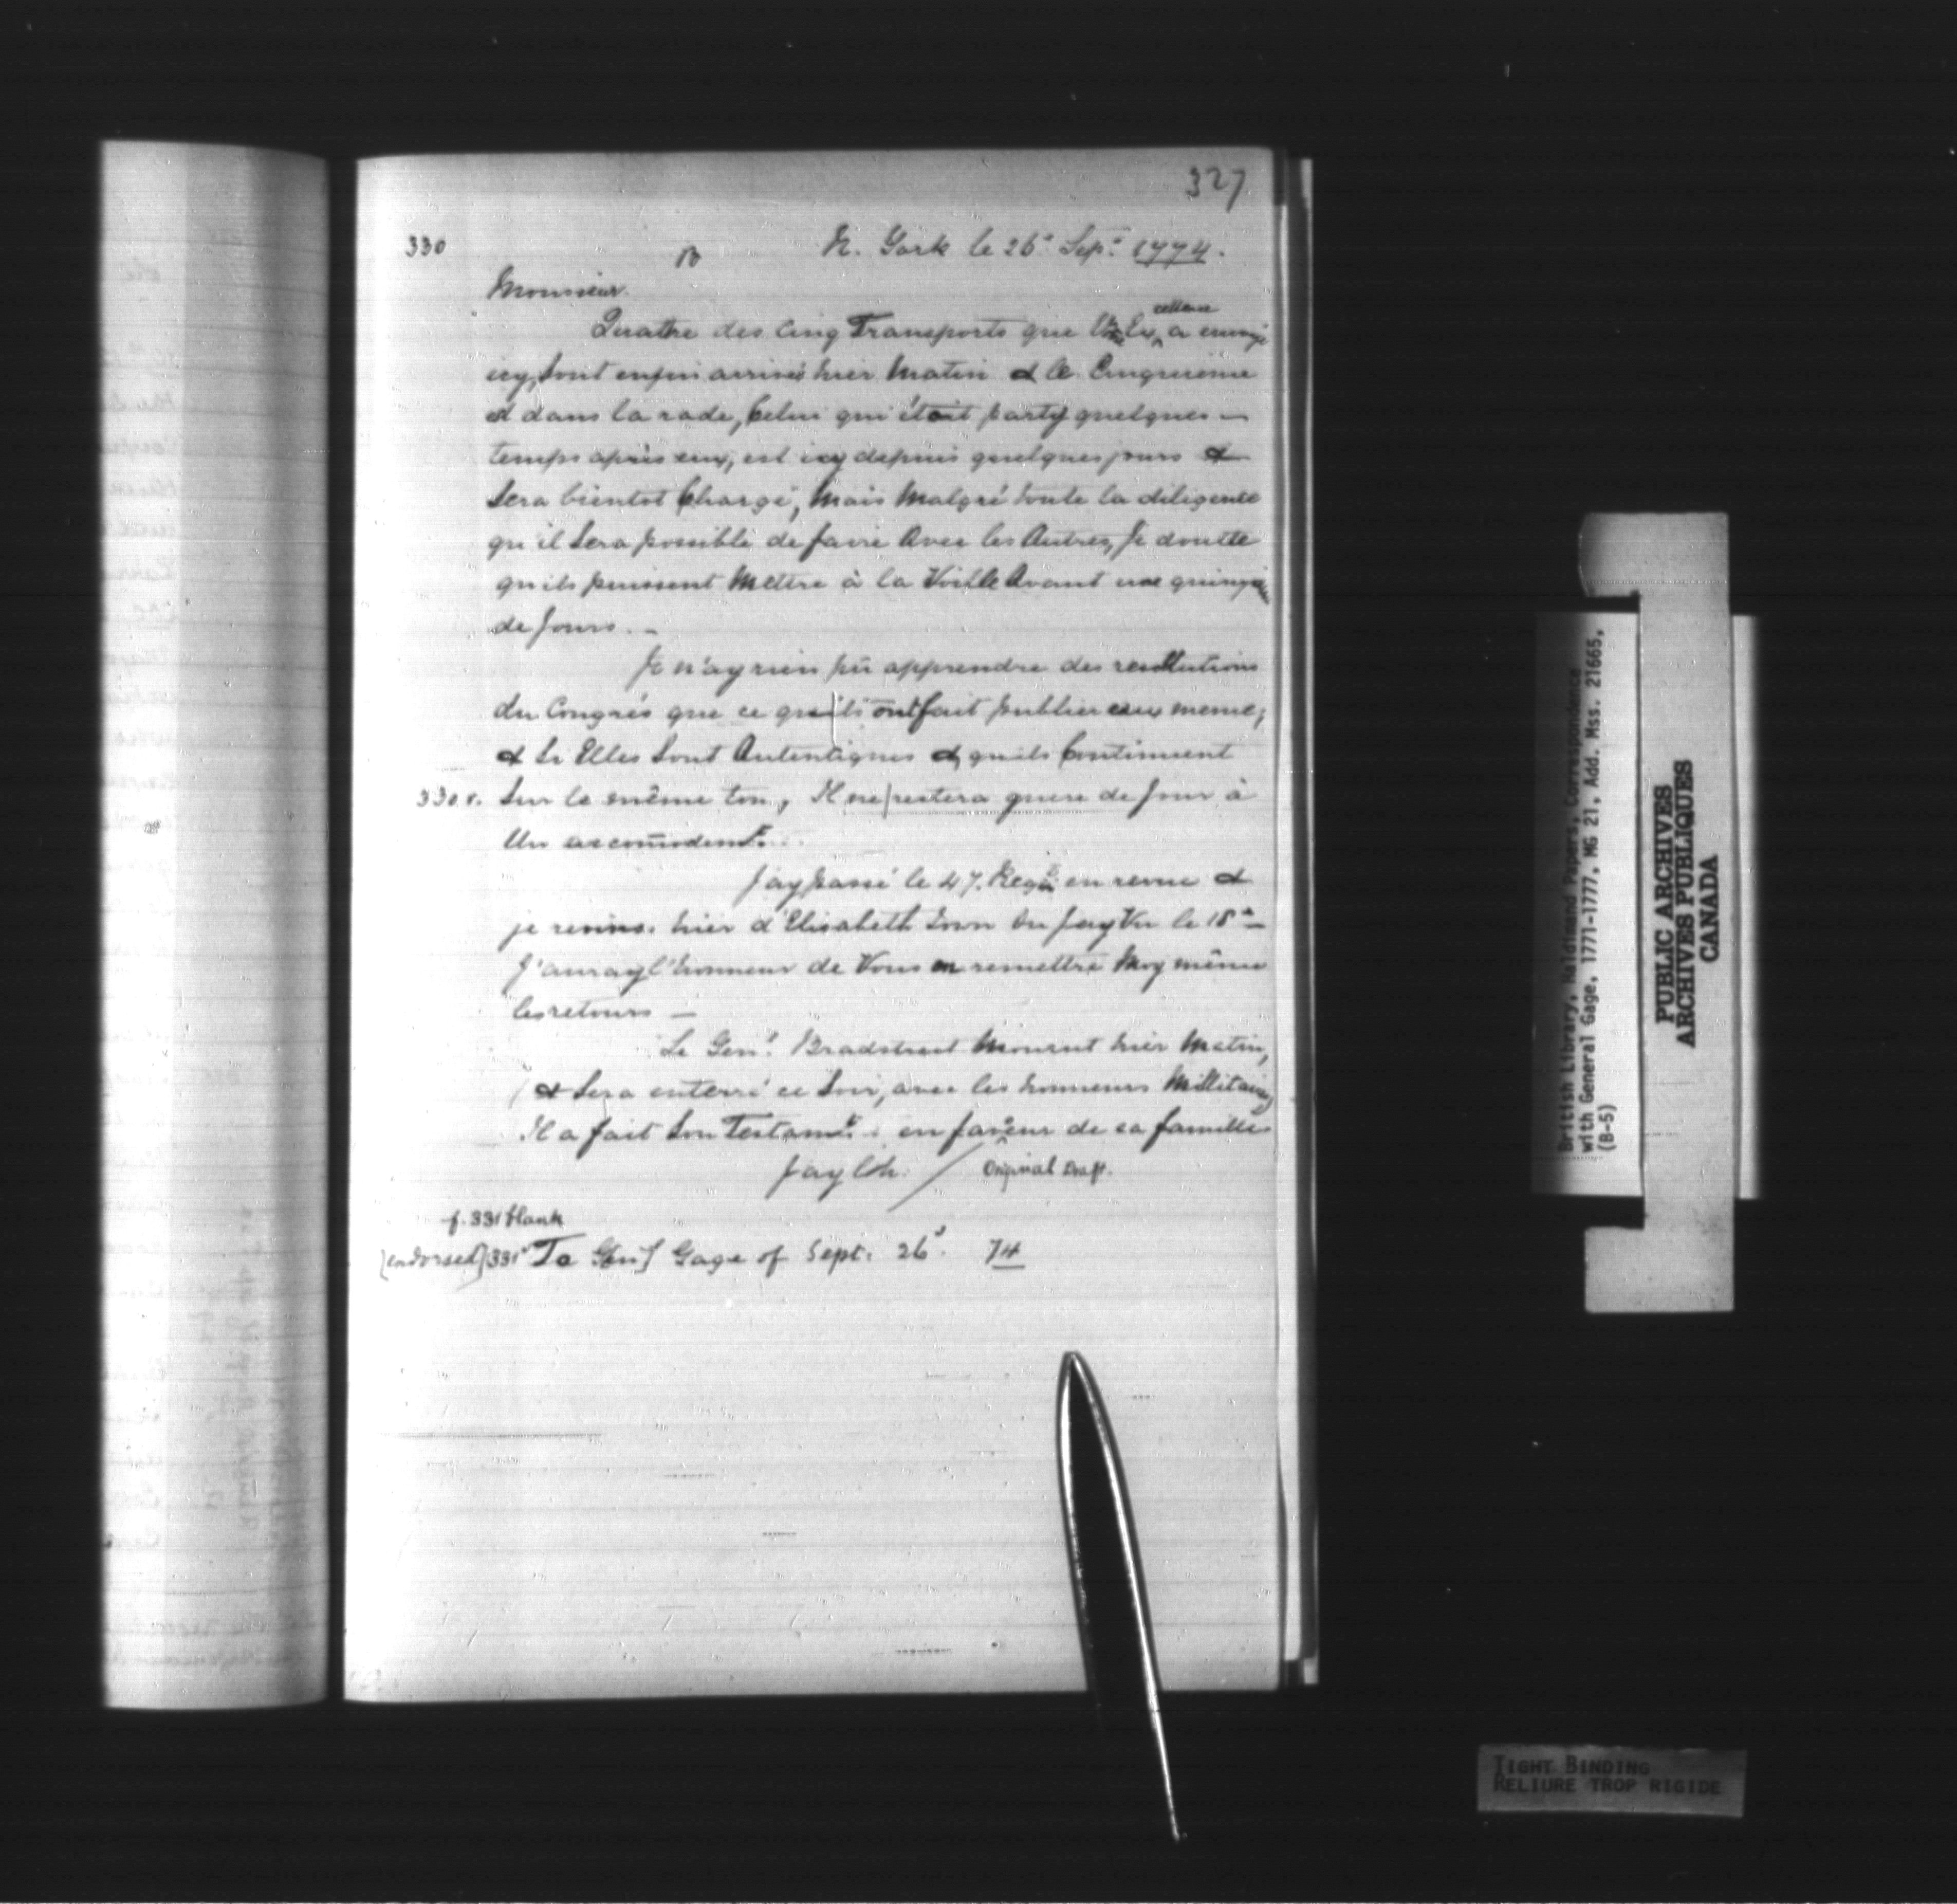 327
330
B
N. York le 26e Sepr. 1774.
Monsieur.
Quathe des Cinq Transports que Vtre Excellence a envoyé
icy, sont enfin arrivés hier Matin & le Cinquieme
est dans la rade, Celui qui étoit party quelques —
temps après eux, est icy depuis quelques jours &
Sera bientot Chargé, Mais Malgré toute la diligence
qu'il Sera possible de faire Avec les Autres, Je doutte
qu'ils puissent Mettre à la Voille Avant une quinzaine
de Jours. —
Je n'ay rien pû apprendre des resolutions
du Congrés que ce qu'ils ont fait publier eux meme;
& Si Elles Sont Autentiques & qu'ils Continuent
330v. Sur le même ton, Il ne restera guere de Jour à
Un accomodemt.
J'ay passé le 47. Regt. en revue &
je revins hier d'Elisabeth Town Ou J'ay Vu le 18e —
J'auray l'honneur de Vous en remettre Moy même
les retours —
Le Genl. Bradstreet Mourut hier Matin,
& Sera enterré ce Soir, avec les honneurs Millitaires,
Il a fait Son Testamt. en faveur de sa famille
J'ay l'h. / Original Draft.
f. 331 blank
[endorsed] 331v To Genl Gage of Sept. 26e. 74
British Library, Haldimand Papers, Correspondence
with General Gage, 1771-1777, MG 21, Add. Mss. 21665,
(B-5)
PUBLIC ARCHIVES
ARCHIVES PUBLIQUES
CANADA
TIGHT BINDING
RELIURE TROP RIGIDE